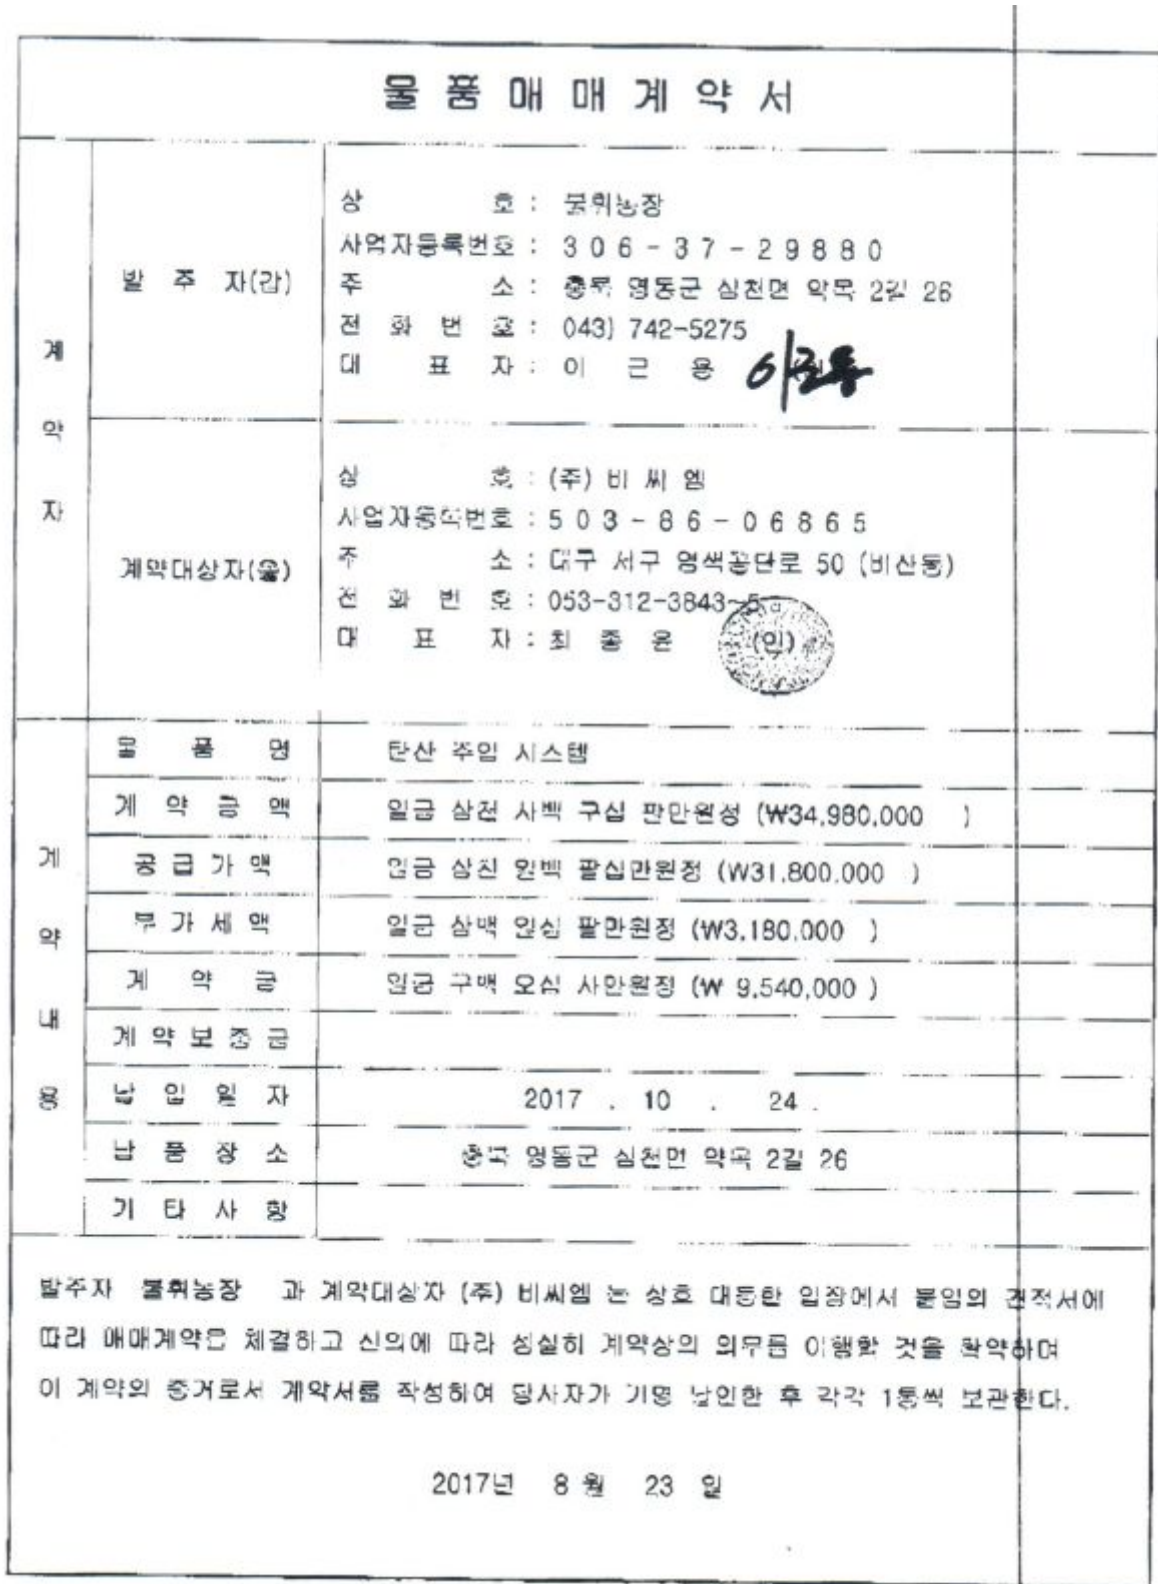 물 품 매 매 계 약 서
계 약 자
발 주 자(갑)
상 호 : 불휘농장
사업자등록번호 : 3 0 6 - 3 7 - 2 9 8 8 0
주 소 : 충북 영동군 심천면 약목 2길 26
전 화 번 호 : 043) 742-5275
대 표 자 : 이 근 용 이근용
계약대상자(을)
상 호 : (주) 비 씨 엠
사업자등록번호 : 5 0 3 - 8 6 - 0 6 8 6 5
주 소 : 대구 서구 염색공단로 50 (비산동)
전 화 번 호 : 053-312-3843~5
대 표 자 : 최 종 윤 (인)
계 약 내 용
물 품 명 탄산 주입 시스템
계 약 금 액 일금 삼천 사백 구십 팔만원정 (₩34,980,000 )
공 급 가 액 일금 삼천 일백 팔십만원정 (₩31,800,000 )
부 가 세 액 일금 삼백 일십 팔만원정 (₩3,180,000 )
계 약 금 일금 구백 오십 사만원정 (₩ 9,540,000 )
계 약 보 증 금
납 입 일 자 2017 . 10 . 24 .
납 품 장 소 충북 영동군 심천면 약목 2길 26
기 타 사 항
발주자 불휘농장 과 계약대상자 (주) 비씨엠 는 상호 대등한 입장에서 붙임의 견적서에
따라 매매계약은 체결하고 신의에 따라 성실히 계약상의 의무를 이행할 것을 확약하며
이 계약의 증거로서 계약서를 작성하여 당사자가 기명 날인한 후 각각 1통씩 보관한다.
2017년 8 월 23 일